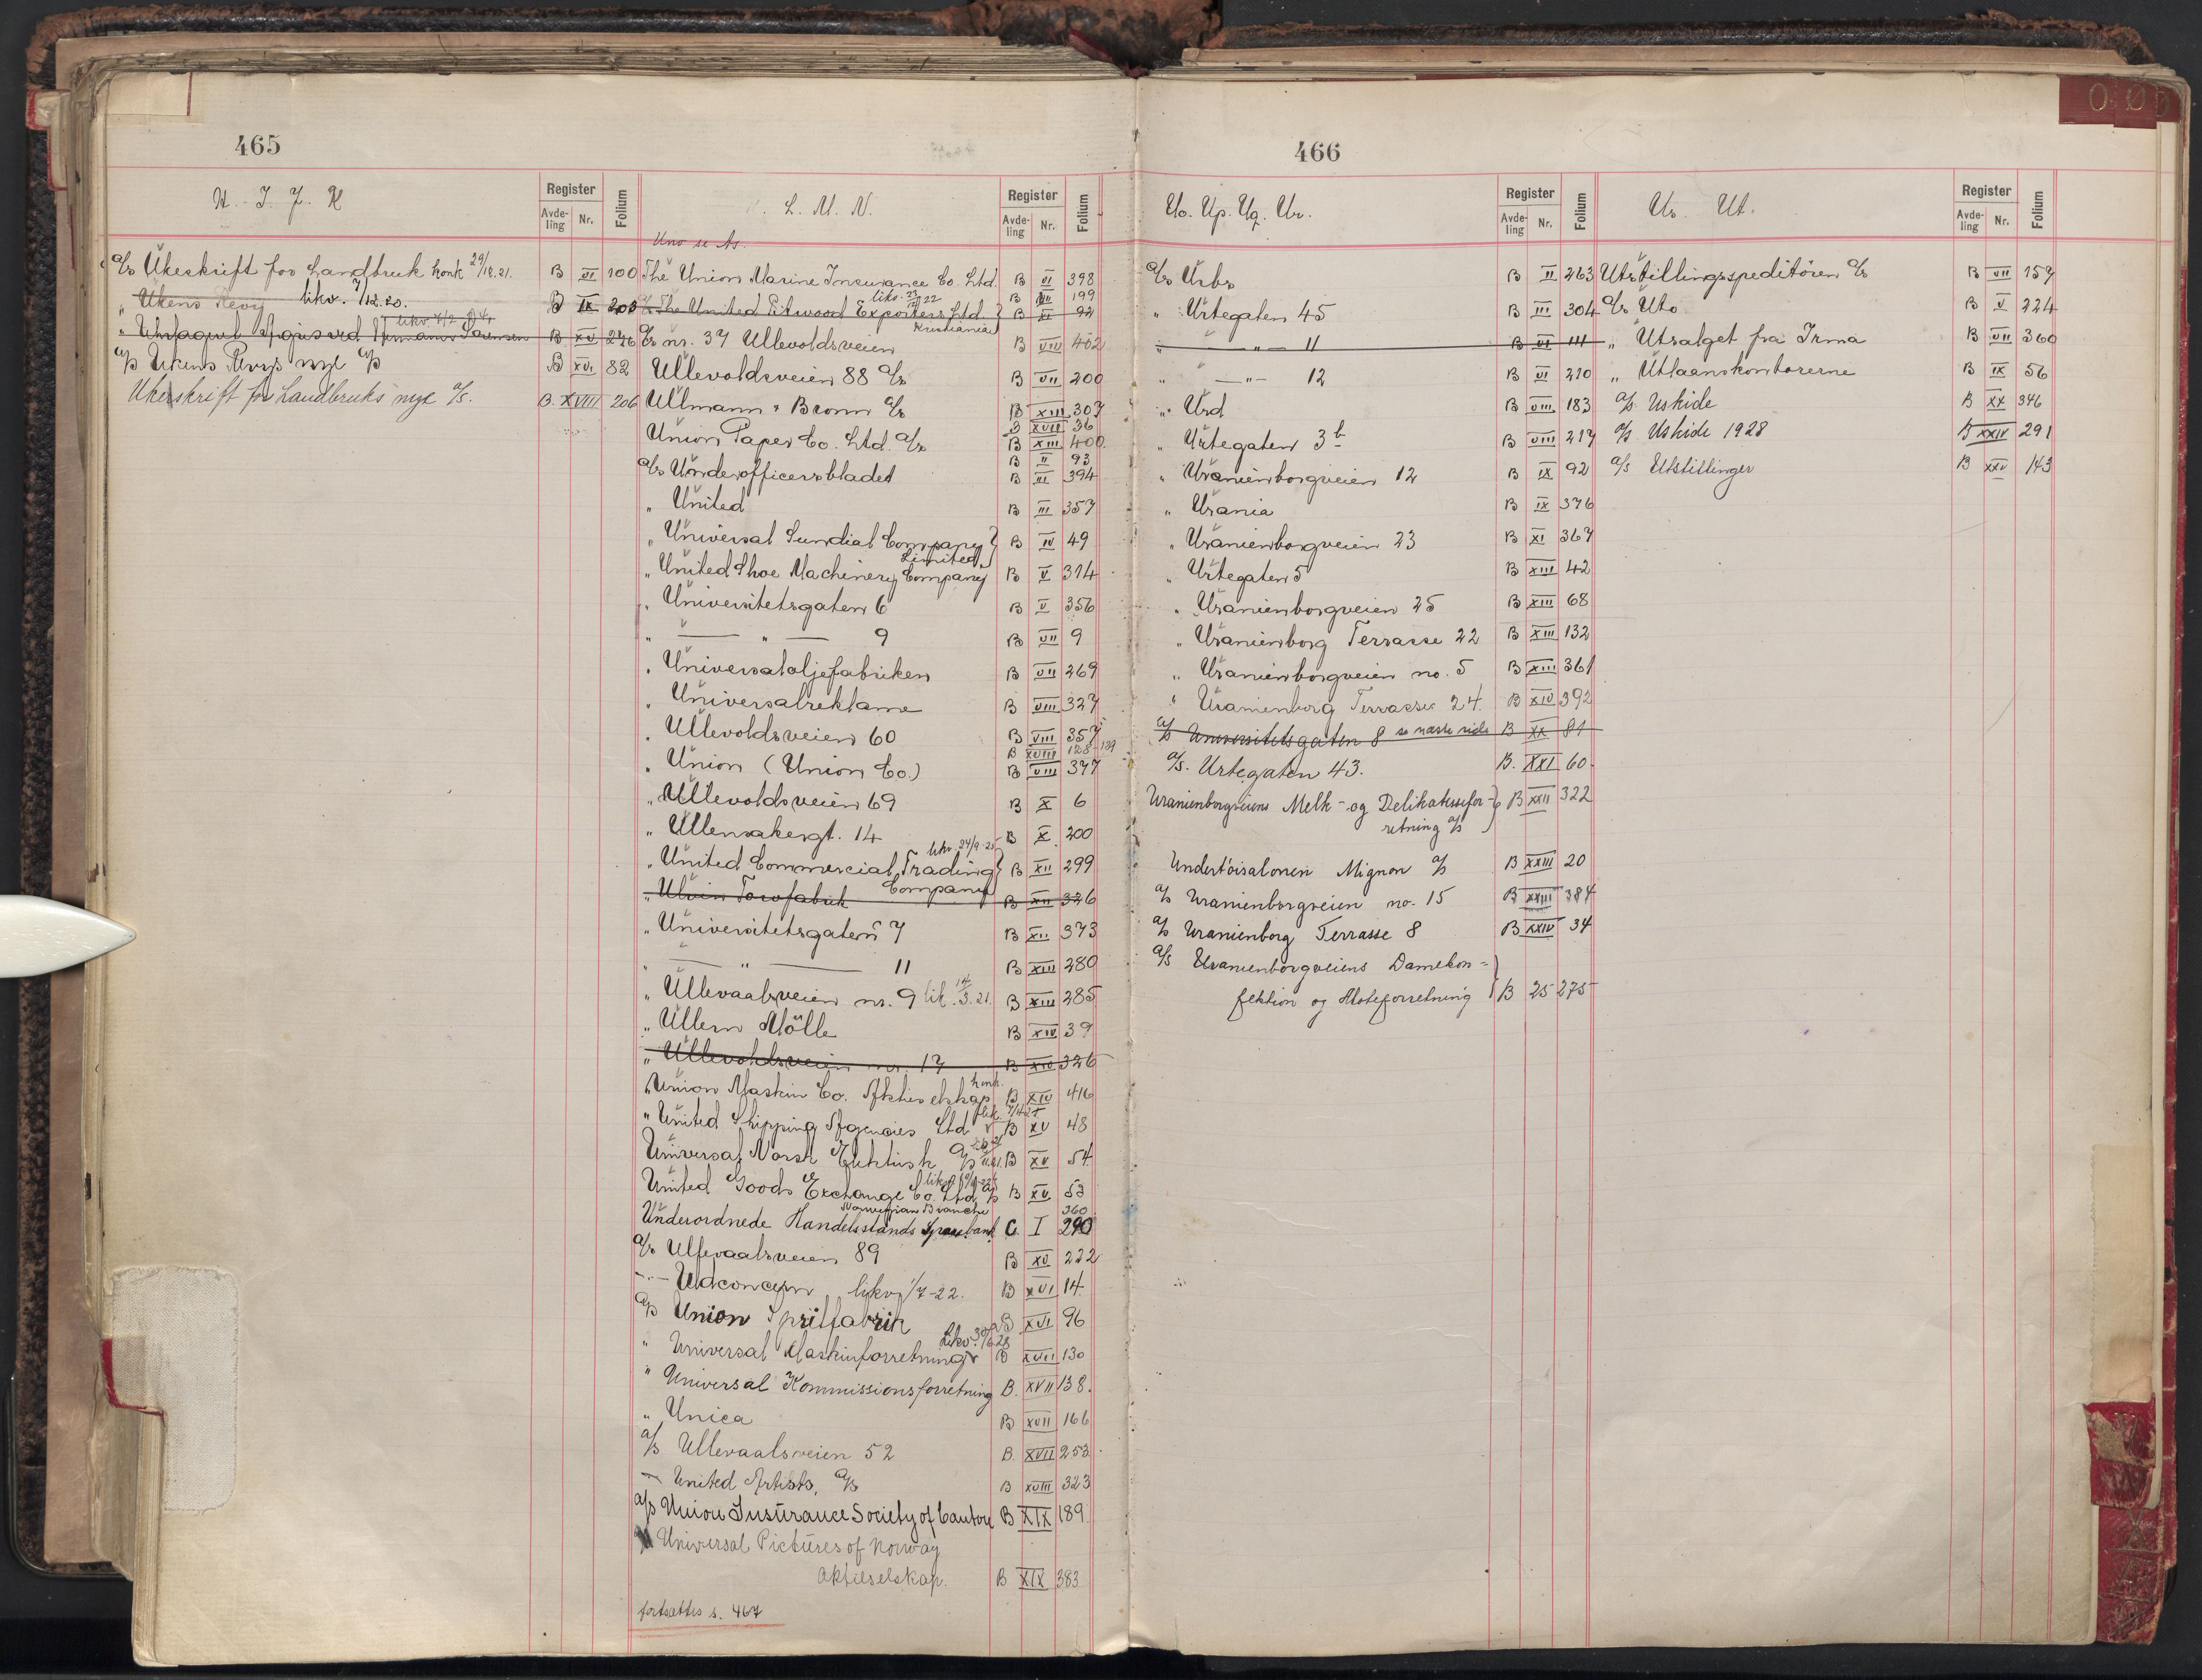 465
U. I. J. K
Register
Avde-ling
Nr.
Folium
A/s Ukeskrift for Landbruk konk 29/12.21. B VI 100
" Ukens Revy likv. 7/12.20. B IX 206
likv. 4/2
" B XV 246
A/s Ukens Revys nye A/s B XVI 82
Ukeskrift for Landbruks nye A/s. B. XVIII 206
L. M. N.
Register
Avde-ling
Nr.
Folium
Uno se As.
The Union Marine Insurance Co. Ltd. B VI 398
likv. 23/12 22 B VII 199
The United Pitwood Exporters Ltd. } B XI 92
Kristiania
A/s nr. 37 Ullevoldsveien B VIII 402
Ullevoldsveien 88 A/s B VII 200
Ullmann & Bronn A/s B XIII 307
B XVII 36
Union Paper Co. Ltd. A/s B XIII 400
B II 93
A/s Underofficersbladet B III 394
" United B III 357
" Universal Sundial Company } B IV 49
Limited
" United Shoe Machinery Company B V 314
" Universitetsgaten 6 B V 356
" — " — 9 B VII 9
" Universaloljefabriken B VII 269
" Universalreklame B VIII 327
" Ullevoldsveien 60 B VIII 357
B XVIII 128-139
" Union (Union Co.) B VIII 377
" Ullevoldsveien 69 B X 6
" Ullensakergt. 14 B X 200
likv. 24/9-25
" United Commercial Trading } B XII 299
Company
" Ulvin Torvfabrik B XII 326
" Universitetsgaten 7 B XII 373
" — " — 11 B XIII 280
" Ullevaalsveien nr. 9 lik. 14/3.21. B XIII 285
" Ullern Mölle B XIV 39
" Ullevoldsveien nr. 17 B XIV 326
konk.
" Union Maskin Co. Aktieselskap B XIV 416
" United Shipping Agencies Ltd B XV 48
Universal Norsk Elektrisk A/s B XV 54
likv.
United Goods Exchange Co. Ltd A/s B XV 53
Norwegian Branche 360
Underordnede Handelsstands Sparebank C I 290
A/s Ullevaalsveien 89 B XV 222
-"- Udconcern likv. 1/7-22. B XVI 14
A/s Union Spritfabrik B XVI 96
Likv. 30/6 28
" Universal Maskinforretning B XVII 130
" Universal Kommissionsforretning B. XVII 138.
" Unica B XVII 166
A/s Ullevaalsveien 52 B. XVII 253
— United Artists, A/s B XVIII 323
A/s Union Insurance Society of Canton B XIX 189
Universal Pictures of Norway
Aktieselskap. B XIX 383
fortsættes s. 467
466
Uo. Up. Uq. Ur.
Register
Avde-ling
Nr.
Folium
A/s Urbs B II 263
" Urtegaten 45 B III 304
" — " — 11 B VI 111
" — " — 12 B VI 210
" Urd B VIII 183
" Urtegaten 3b B VIII 217
" Uranienborgveien 12 B IX 92
" Urania B IX 376
" Uranienborgveien 23 B XI 367
" Urtegaten 5 B XIII 42
" Uranienborgveien 25 B XIII 68
" Uranienborg Terrasse 22 B XIII 132
" Uranienborgveien no. 5 B XIII 361
" Uranienborg Terrasse 24. B XIV 392
A/s Universitetsgaten 8 se næste side B XX 81
A/s. Urtegaten 43. B. XXI 60.
Uranienborgveiens Melk- og Delikatessefor- } B XXII 322
retning A/s
Undertøisalonen Mignon A/s B XXIII 20
A/s Uranienborgveien no. 15 B XXIII 384
A/s Uranienborg Terrasse 8 B XXIV 34
A/s Uranienborgveiens Damekon- }
fektion og Moteforretning B 25 275
Us. Ut.
Register
Avde-ling
Nr.
Folium
Utstillingsspeditören A/s B VII 157
A/s Uto B V 224
" Utsalget fra Irma B VII 360
" Utlaanskontorerne B IX 56
A/s Uskide B XX 346
A/s Uskide 1928 B XXIV 291
A/s Utstillinger B XXV 143
O
Ø